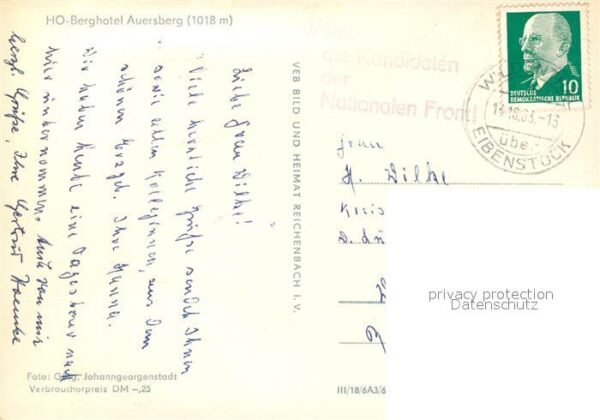 HO-Berghotel Auersberg (1018 m)
Liebe Frau Dilke!
Viele herzliche Grüße sendet Ihnen
sowie allen Kolleginnen, aus dem
schönen Ihre Hanna.
Wir haben heute eine Tagestour nach
hier unternommen. Auch von mir
herzl. Grüße, Ihre Gertrud
Foto: Johanngeorgenstadt
Verbraucherpreis DM -,25
VEB BILD UND HEIMAT REICHENBACH I. V.
III/18/6A3/6
Wählt
die Kandidaten
der
Nationalen Front!
10
DEUTSCHE
DEMOKRATISCHE REPUBLIK
über
EIBENSTOCK
Frau
H. Dilke
Kreis
privacy protection
Datenschutz